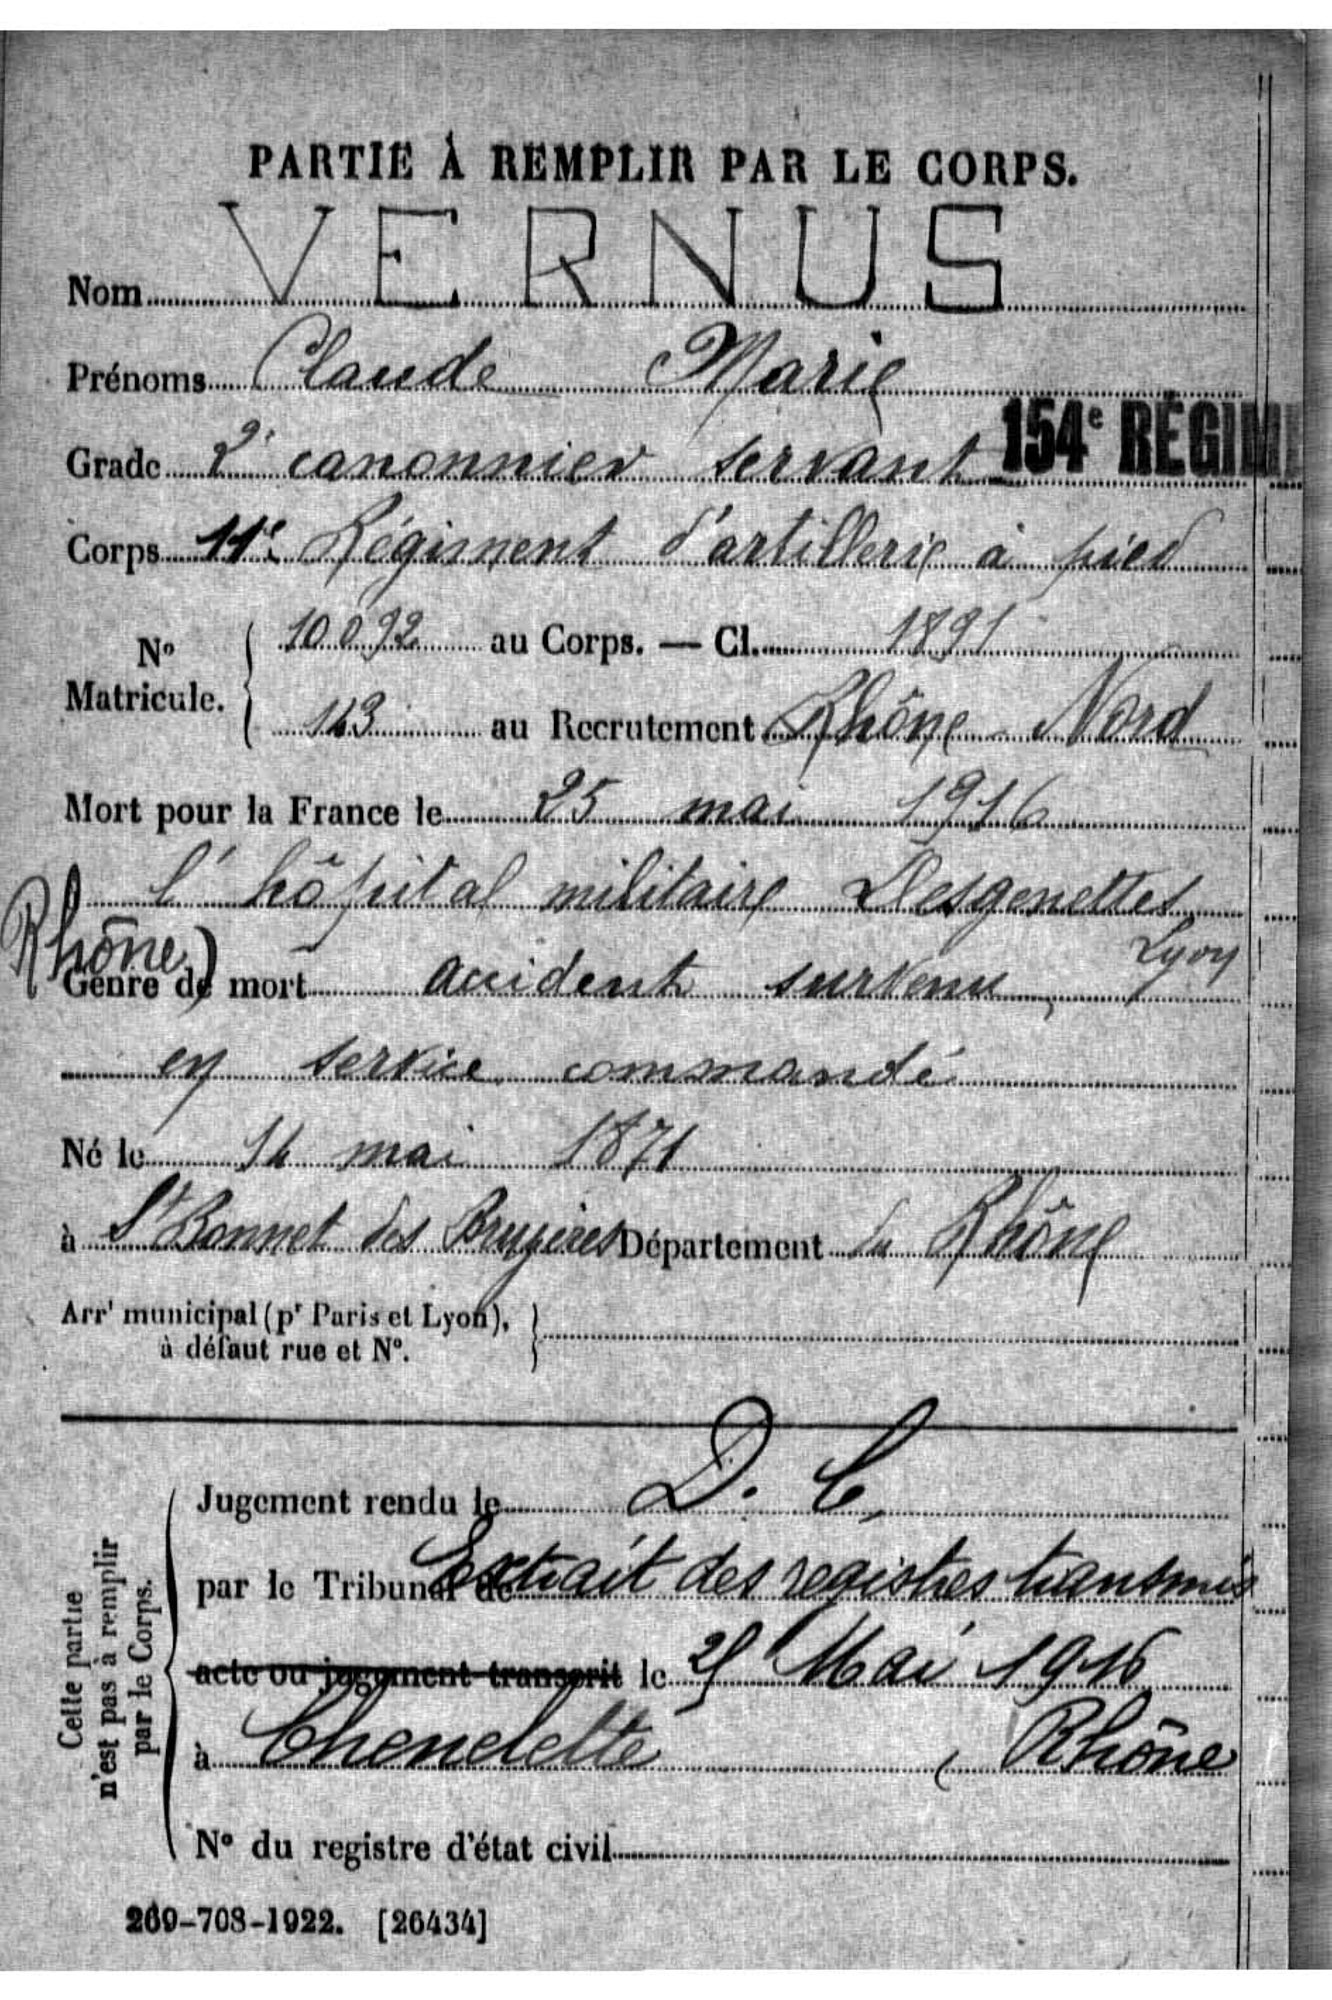 PARTIE À REMPLIR PAR LE CORPS.
Nom VERNUS
Prénoms Claude Marie
Grade 2e canonnier servant 154e RÉGIM
Corps 11e Régiment d'artillerie à pied
No Matricule.
10092 au Corps. — Cl. 1891
143 au Recrutement Rhône Nord
Mort pour la France le 25 mai 1916
l'hôpital militaire Desgenettes Lyon
Rhône)
Genre de mort accident survenu
en service commandé
Né le 14 mai 1871
à St Bonnet des Bruyères Département du Rhône
Arrt municipal (pr Paris et Lyon),
à défaut rue et No.
Cette partie
n'est pas à remplir
par le Corps.
Jugement rendu le D. C.
par le Tribunal de Extrait des registres transmis
acte ou jugement transcrit le 25 Mai 1916
à Chenelette ( Rhône
No du registre d'état civil
269-708-1922. [26434]